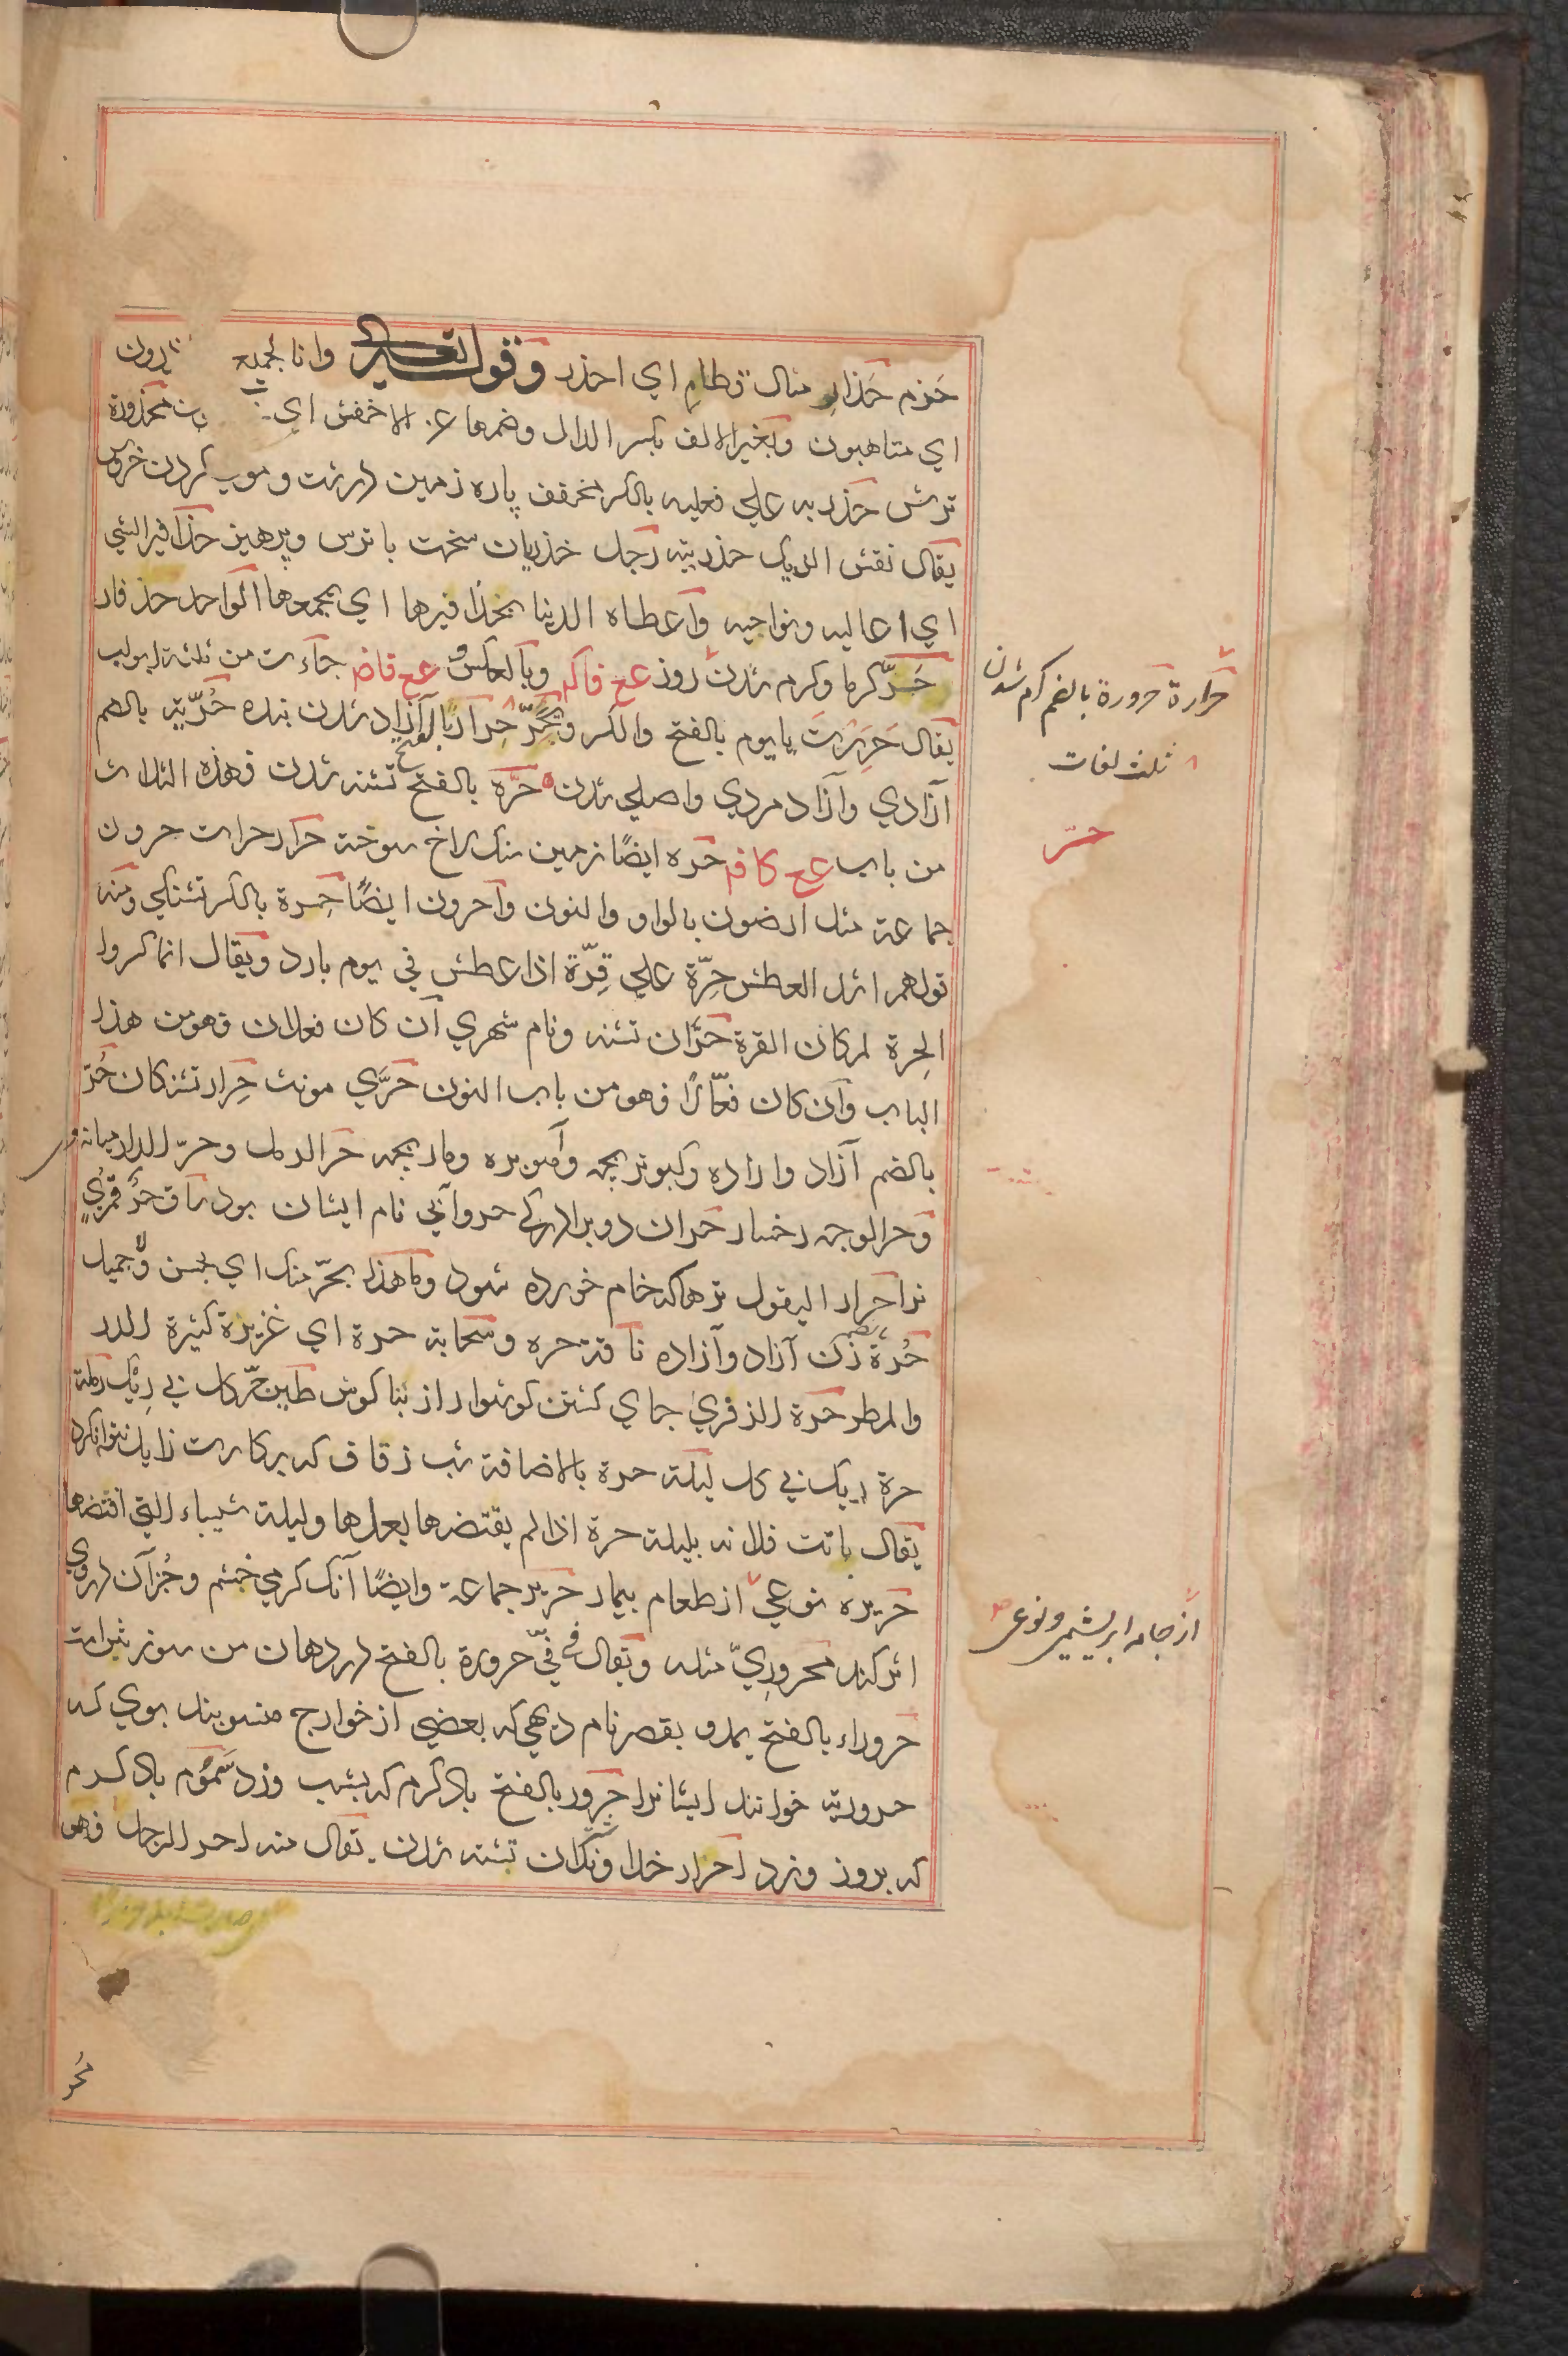 حَزم حَذارِ مثال قطامِ اي احذر وقوله تعالى وانا لجميع ‍ذرون
اي متاهبون وبغير الالف بكسر الذال وضمها عن الاخفش اي محذورة
ترش حذريه علي فعليه بالكسر مخفف پاره زمين درشت وموي گردن خروس
يقال نفش الديك حذريته رجل حذريان سخت با ترس وپرهيز حذافير الشي
اي اعاليه ونواحيه واعطاه الدنيا بحذافيرها اي بجمعها الواحد حذفار
حَرّ گرما وگرم شدن روز عج فاكم وبالعكس وعج قاض جاءت من ثلثة ابواب
يقال حَرِرْتَ يا يوم بالفتح والكسر ويَحَرّ حرارًا بالفتح آزاد شدن بنده حُرّيّة بالضم
آزادي وآزاد مردي واصلي شدن حَرّه بالفتح تشنه شدن فهذه الثلاث
من باب عج كافم حره ايضًا زمين سنك لاخ سوخته حرار حرات حرون
جماعة مثل ارضون بالواو والنون واحرون ايضًا حِرة بالكسر تشنكي ومنه
قولهم اشد العطش حِرّة علي قِرّة اذا عطش في يوم بارد ويقال انما كسروا
الحِرة لمكان القرة حَرّان تشنه ونام شهري ان كان فعلان فهو من هذا
الباب وان كان فعّالًا فهو من باب النون حَرّي مونث حِرار تشنكان حُرّ
بالضم آزاد وازاده وكبوتر بچه وآهو بره ومار بچه حر الرمل وحرّ الدار ميانه وي
وحر الوجه رخسار حران دو برادر كه حر وأبي نام ايشان بود ساق حُرّ قُمري
نر احرار البقول ترها كه خام خورده شود وما هذا بحرّ منك اي بحسن ولا جميل
حُرة زن آزاد وآزاده ناقة حره وسحابة حرة اي غزيرة كثيرة الدر
والمطر حرة الذفري جاي كشتن كوشوار از بناكوش طين حرّ كل بي ريك رملة
حرة ريك بي كل ليلة حرة بالاضافة شب زفاف كه بركارت زايل نتوان كرد
يقال باتت فلانه بليلة حرة اذا لم يقتضها بعلها وليلة شيباء التي اقتضها
حريره نوعي از طعام بيمار حرير جماعة وايضًا آنك كرمي خشم وجز آن دروي
اثر كند محروريّ مثله ويقال في فيّ حرورة بالفتح در دهان من سوزش است
حروراء بالفتح يمد ويقصر نام ديهي كه بعضي از خوارج منسوبند بوي كه
حرورية خوانند ايشانرا حَرور بالفتح باد كرم كه بشب وزد سَموم باد كرم
كه بروز وزد احرار خداوندان تشنه شدن يقال منه احر الرجل فهو
حرارة حرورة بالضم كرم شدن
ثلث لغات
حرّ
از جامه ابريشمي ونوعي
مُحر